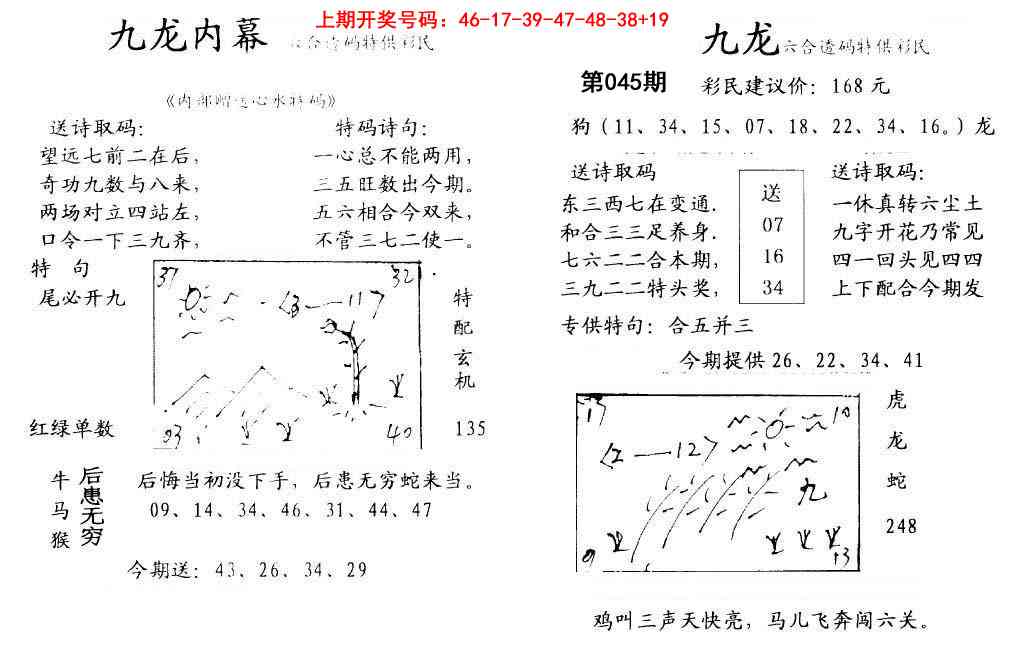 上期开奖号码：46-17-39-47-48-38+19
九龙内幕 六合透码特供彩民
《内部赠送心水特码》
送诗取码：
望远七前二在后，
奇功九数与八来，
两场对立四站左，
口令一下三九齐，
特码诗句：
一心总不能两用，
三五旺数出今期。
五六相合今双来，
不管三七二使一。
特 句
尾必开九
红绿单数
37
32
(3——11)
03
40
特
配
玄
机
135
牛
马
猴
后患无穷
后悔当初没下手，后患无穷蛇来当。
09、14、34、46、31、44、47
今期送：43、26、34、29
九龙六合透码特供彩民
第045期 彩民建议价：168元
狗（11、34、15、07、18、22、34、16。）龙
送诗取码
东三西七在变通．
和合三三足养身．
七六二二合本期，
三九二二特头奖，
送
07
16
34
送诗取码：
一休真转六尘土
九字开花乃常见
四一回头见四四
上下配合今期发
专供特句：合五并三
今期提供26、22、34、41
17
10
(2——12)
九
9
13
虎
龙
蛇
248
鸡叫三声天快亮，马儿飞奔闯六关。